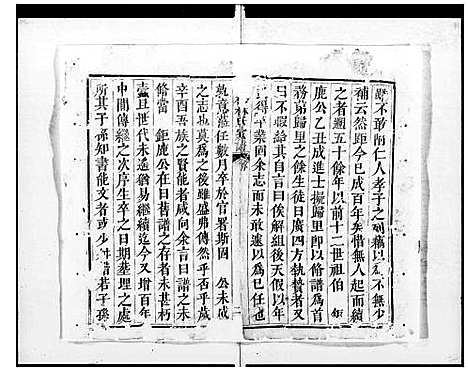 不敢附仁人孝子之列竊以為無少
補云然距今已成百年矣惜無人起而續
之者迴五十餘年以前十二世祖伯
鹿公乙丑成進士擬歸里即以脩譜為首
務第歸里之餘生徒日廣四方執贄者又
日不暇給其自言曰俟解組後天假以年
得平業回余志而未敢遽以為已任也
執竟蒞任數月卒於官署斯固 公未成
之志也莫為之後雖盛弗傳然乎否乎歲
辛酉吾族之賢能者咸向余言曰譜之未
脩當 距鹿公在日舊譜之存者未甚朽
蠹且世代未遠猶易繼續迄今又增百年
中間傳繼之次序生卒之日期墓埋之處
所其子孫知書能文者或少 若子孫